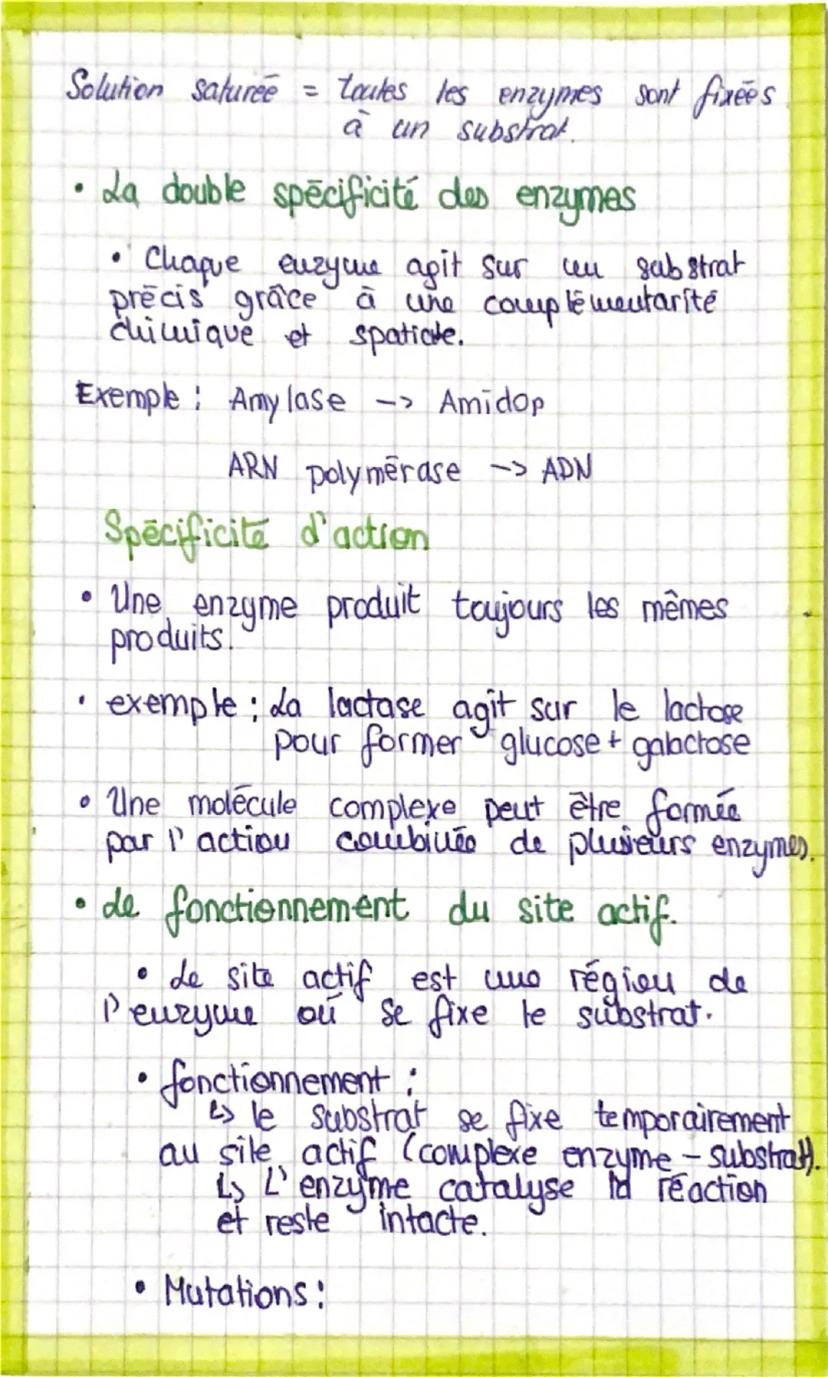 Solution saturée = toutes les enzymes sont fixées
à un substrat.
• La double spécificité des enzymes
• Chaque enzyme agit sur un substrat
précis grâce à une complémentarité
chimique et spatiale.
Exemple : Amylase -> Amidop
ARN polymérase -> ADN
Spécificité d'action
• Une enzyme produit toujours les mêmes
produits.
• exemple : La lactase agit sur le lactose
pour former glucose + galactose
• Une molécule complexe peut être formée
par l'action combinée de plusieurs enzymes.
• Le fonctionnement du site actif.
• Le site actif est une région de
l'enzyme où se fixe le substrat.
• fonctionnement :
↳ le substrat se fixe temporairement
au site actif (complexe enzyme - substrat).
↳ L'enzyme catalyse la réaction
et reste intacte.
• Mutations :